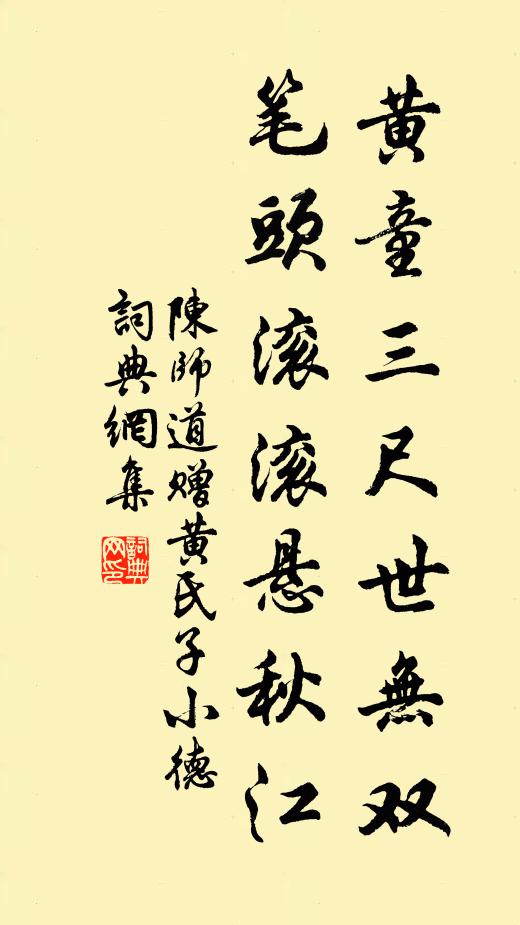 黄童三尺世無双
笔頭滚滚悬秋江
陳師道赠黄氏子小德
詞典網集
詞典網印